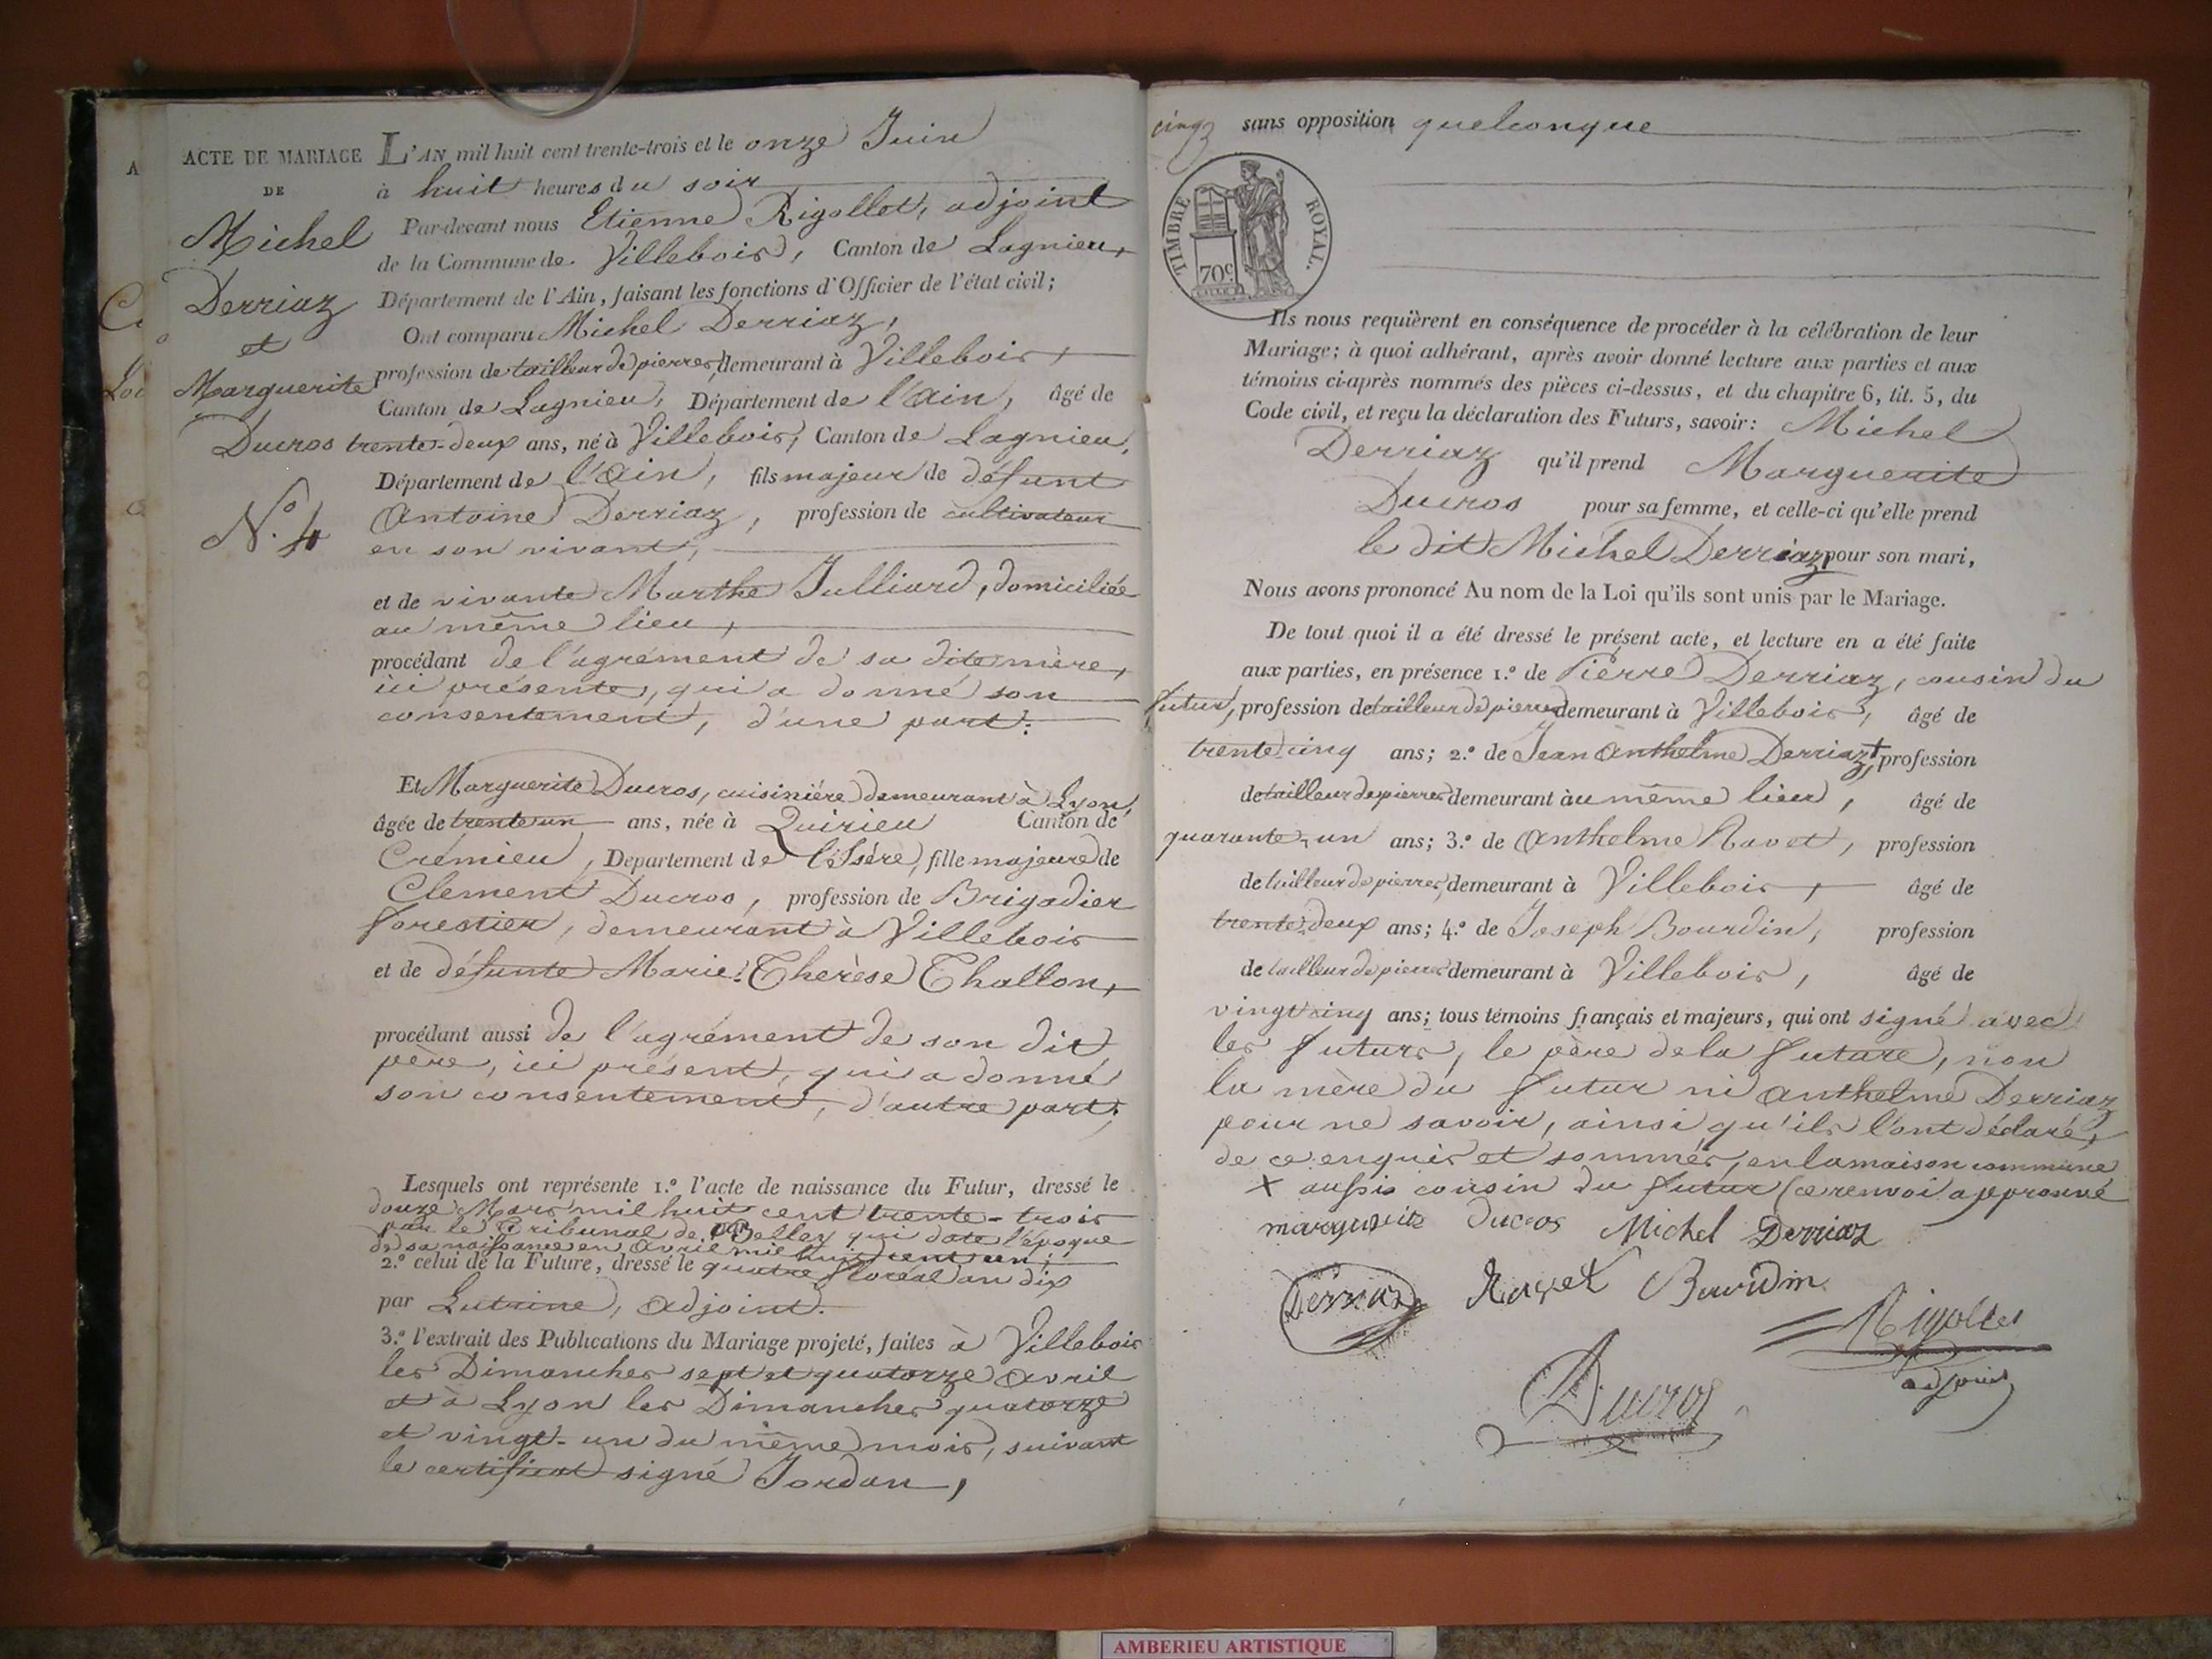 ACTE DE MARIAGE
DE
Michel
Derriaz
et
Marguerite
Ducros
N.º 4
L'AN mil huit cent trente-trois et le onze Juin
à huit heures du soir
Par-devant nous Etienne Rigollet, adjoint
de la Commune de Villebois, Canton de Lagnieu,
Département de l'Ain, faisant les fonctions d'Officier de l'état civil;
Ont comparu Michel Derriaz,
profession de tailleur de pierres, demeurant à Villebois,
Canton de Lagnieu, Département de l'Ain, âgé de
trente-deux ans, né à Villebois, Canton de Lagnieu,
Département de l'Ain, fils majeur de défunt
Antoine Derriaz, profession de cultivateur
en son vivant,
et de vivante Marthe Julliard, domiciliée
au même lieu,
procédant de l'agrément de sa dite mère,
ici présente, qui a donné son
consentement, d'une part.
Et Marguerite Ducros, cuisinière demeurant à Lyon,
âgée de trente un ans, née à Quirieu Canton de
Crémieu, Departement de l'Isére, fille majeure de
Clement Ducros, profession de Brigadier
forestier, demeurant à Villebois
et de défunte Marie Therèse Challon,
procédant aussi de l'agrément de son dit
père, ici présent, qui a donné
son consentement, d'autre part;
Lesquels ont représente 1.º l'acte de naissance du Futur, dressé le
douze Mars mil huit cent trente-trois
par le Tribunal de Belley qui date l'époque
de sa naissance en Avril mil huit cent un;
2.º celui de la Future, dressé le quatre floréal an dix
par Lutrine, adjoint.
3.º l'extrait des Publications du Mariage projeté, faites à Villebois
les Dimanches sept et quatorze Avril
et à Lyon les Dimanches quatorze
et vingt-un du même mois, suivant
le certificat signé Jordan,
cinq
sans opposition quelconque
TIMBRE ROYAL.
70c
Ils nous requièrent en conséquence de procéder à la célébration de leur
Mariage; à quoi adhérant, après avoir donné lecture aux parties et aux
témoins ci-après nommés des pièces ci-dessus, et du chapitre 6, tit. 5, du
Code civil, et reçu la déclaration des Futurs, savoir: Michel
Derriaz qu'il prend Marguerite
Ducros pour sa femme, et celle-ci qu'elle prend
le dit Michel Derriaz pour son mari,
Nous avons prononcé Au nom de la Loi qu'ils sont unis par le Mariage.
De tout quoi il a été dressé le présent acte, et lecture en a été faite
aux parties, en présence 1.º de Pierre Derriaz, cousin du
futur, profession de tailleur de pierres demeurant à Villebois, âgé de
trente cinq ans; 2.º de Jean Anthelme Derriaz + profession
de tailleur de pierres demeurant à au même lieu, âgé de
quarante-un ans; 3.º de Anthelme Ravet, profession
de tailleur de pierres, demeurant à Villebois, âgé de
trente-deux ans; 4.º de Joseph Bourdin, profession
de tailleur de pierres demeurant à Villebois, âgé de
vingt cinq ans; tous témoins français et majeurs, qui ont signé avec
les futurs, le père de la future, non
la mère du futur ni Anthelme Derriaz
pour ne savoir, ainsi qu'ils l'ont déclaré,
de ce enquis et sommés, en la maison commune
X aussi cousin du futur (ce renvoi approuvé
marguerite ducros Michel Derriaz
Derriaz Ravet Bourdin
Rigollet
adjoint
Ducros
AMBERIEU ARTISTIQUE